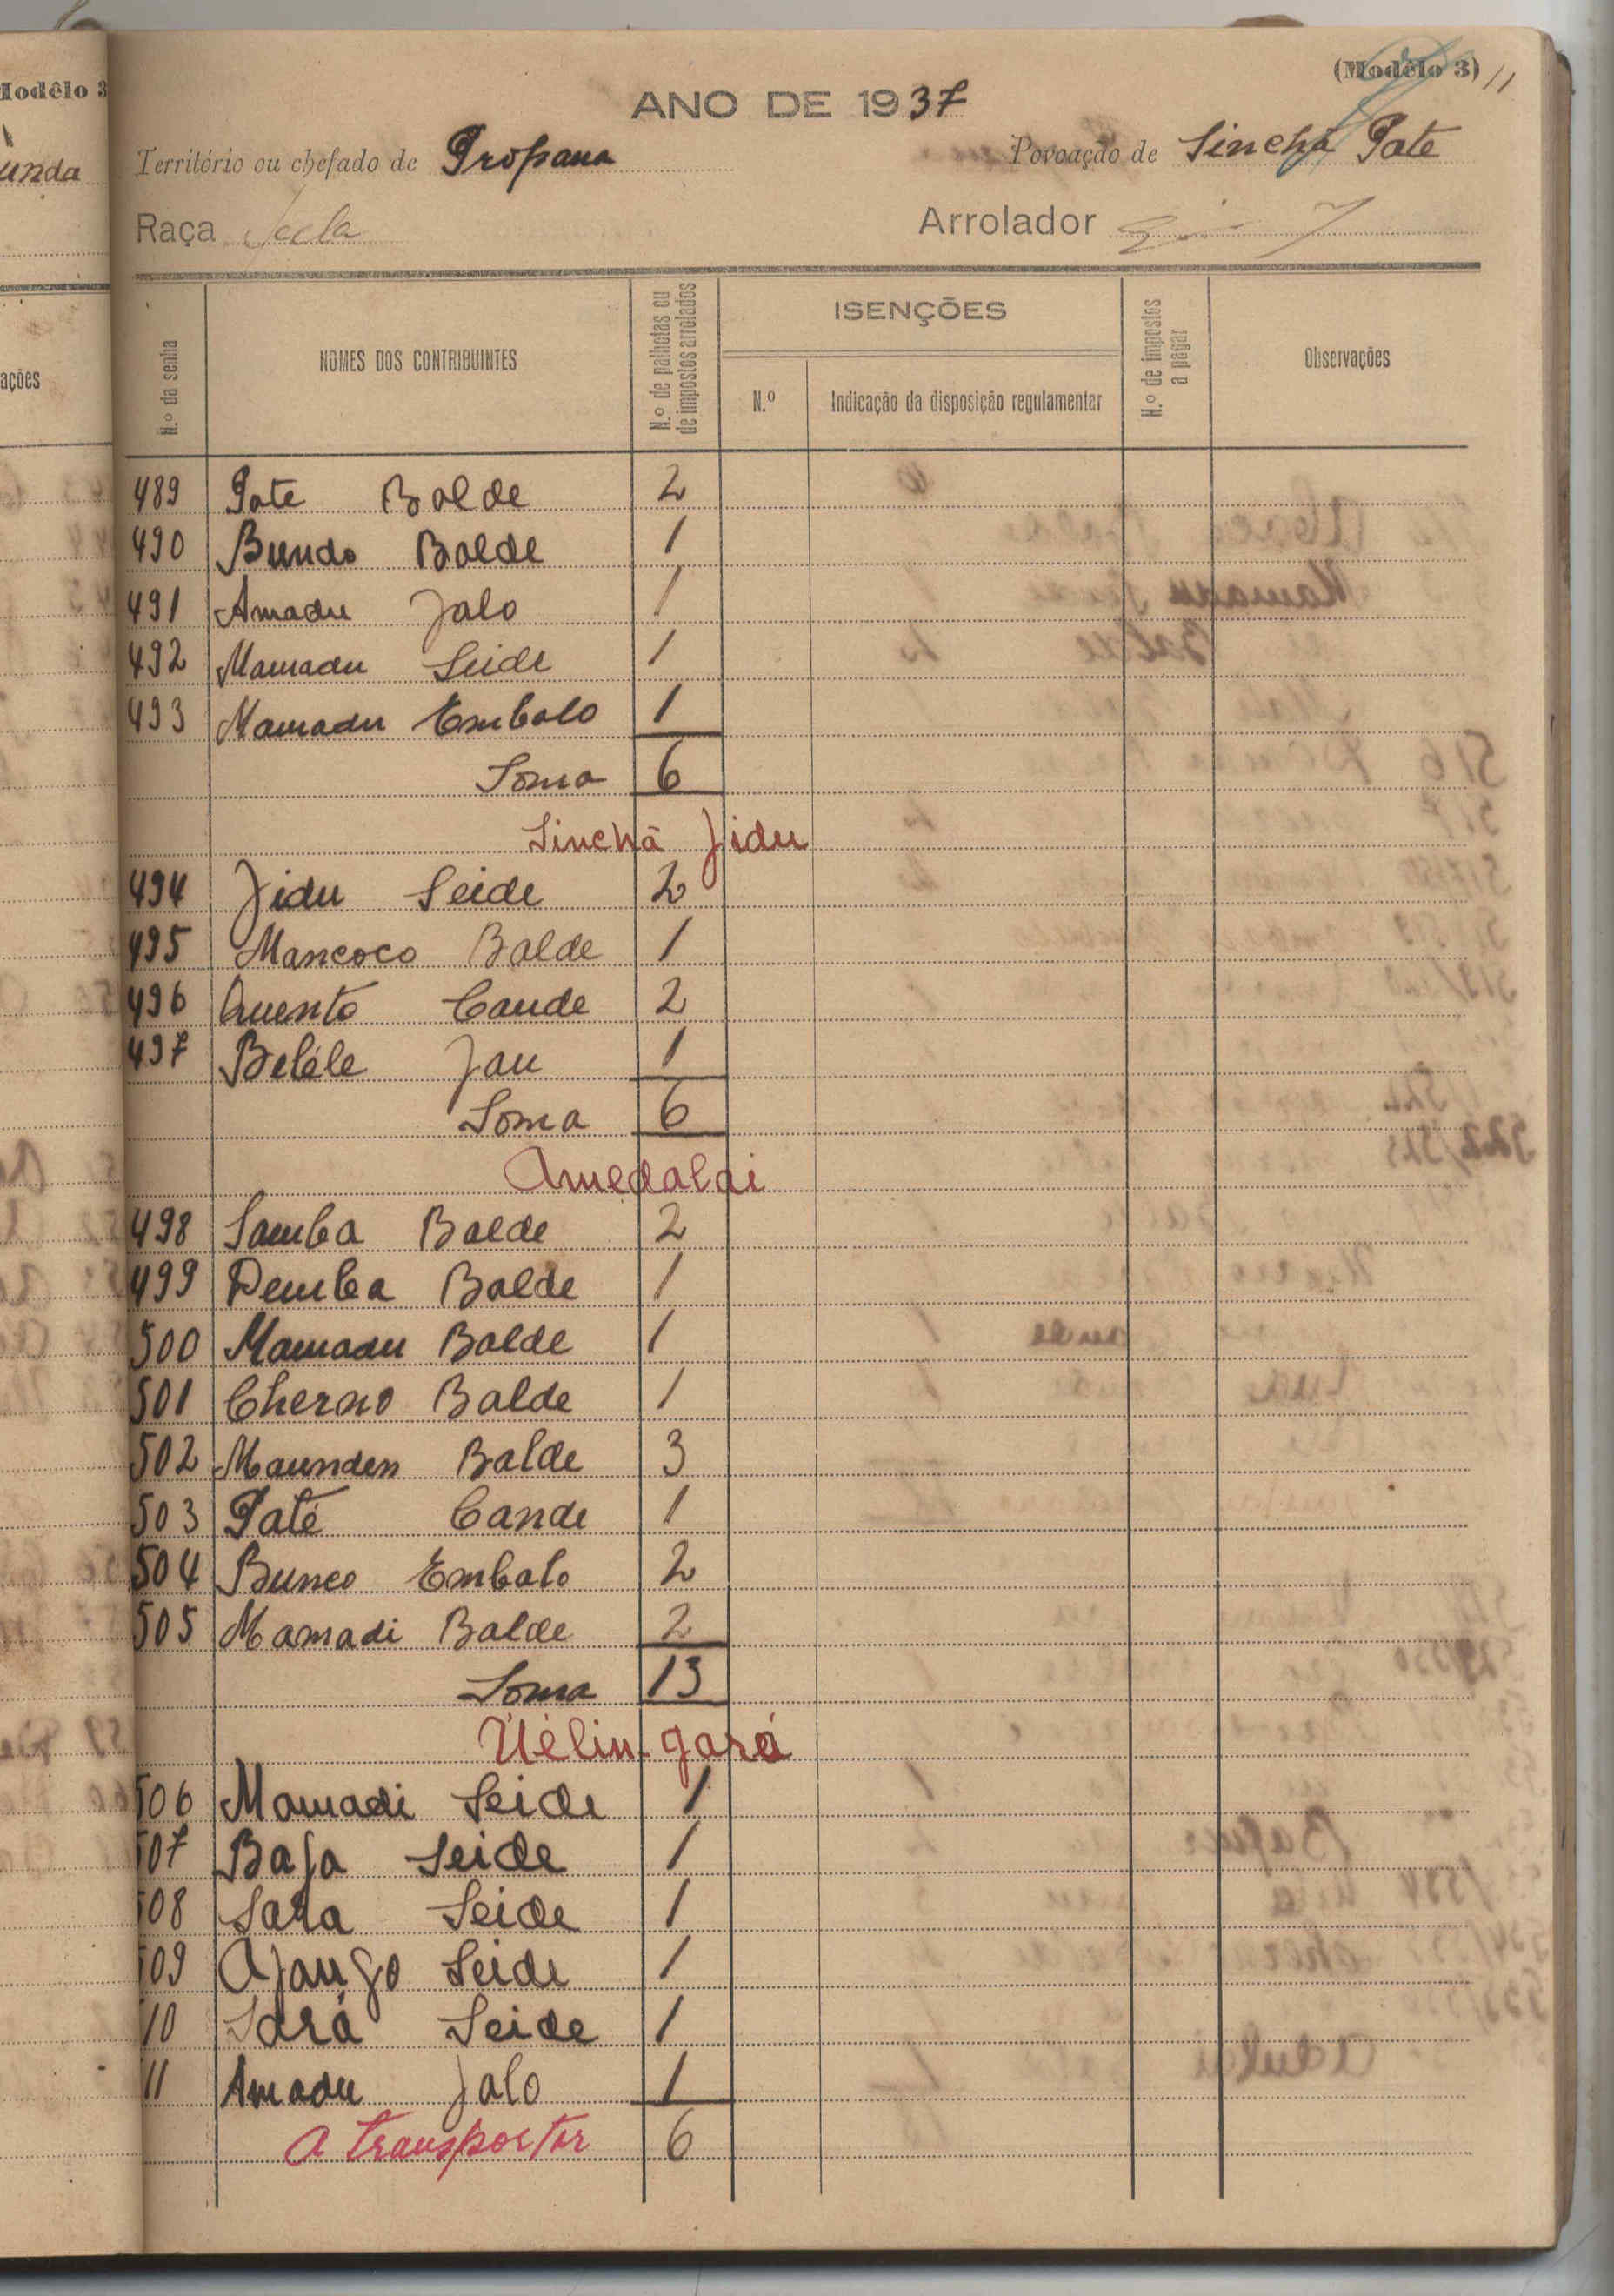 (Modêlo 3) 11
ANO DE 1937
Território ou chefado de Propana Povoação de Sinchã Pate
Raça Arrolador
N.º da senha NOMES DOS CONTRIBUINTES N.º de palhotas ou de impostos arrolados ISENÇÕES N.º Indicação da disposição regulamentar N.º de impostos a pagar Observações
489 Pate Balde 2
490 Bundo Balde 1
491 Amadu Jalo 1
492 Mamadu Seide 1
493 Mamadu Embalo 1
Soma 6
Sinchã Jidu
494 Jidu Seide 2
495 Mancoco Balde 1
496 Quento Cande 2
497 Beléle Jau 1
Soma 6
Amedalai
498 Samba Balde 2
499 Demba Balde 1
500 Mamadu Balde 1
501 Cherno Balde 1
502 Maunden Balde 3
503 Paté Cande 1
504 Bunco Embalo 2
505 Mamadi Balde 2
Soma 13
Uélin-gará
506 Mamadi Seide 1
507 Bafa Seide 1
508 Sara Seide 1
509 Ajango Seide 1
10 Sará Seide 1
11 Amadu Jalo 1
A transportar 6
Modêlo 3
unda
ações